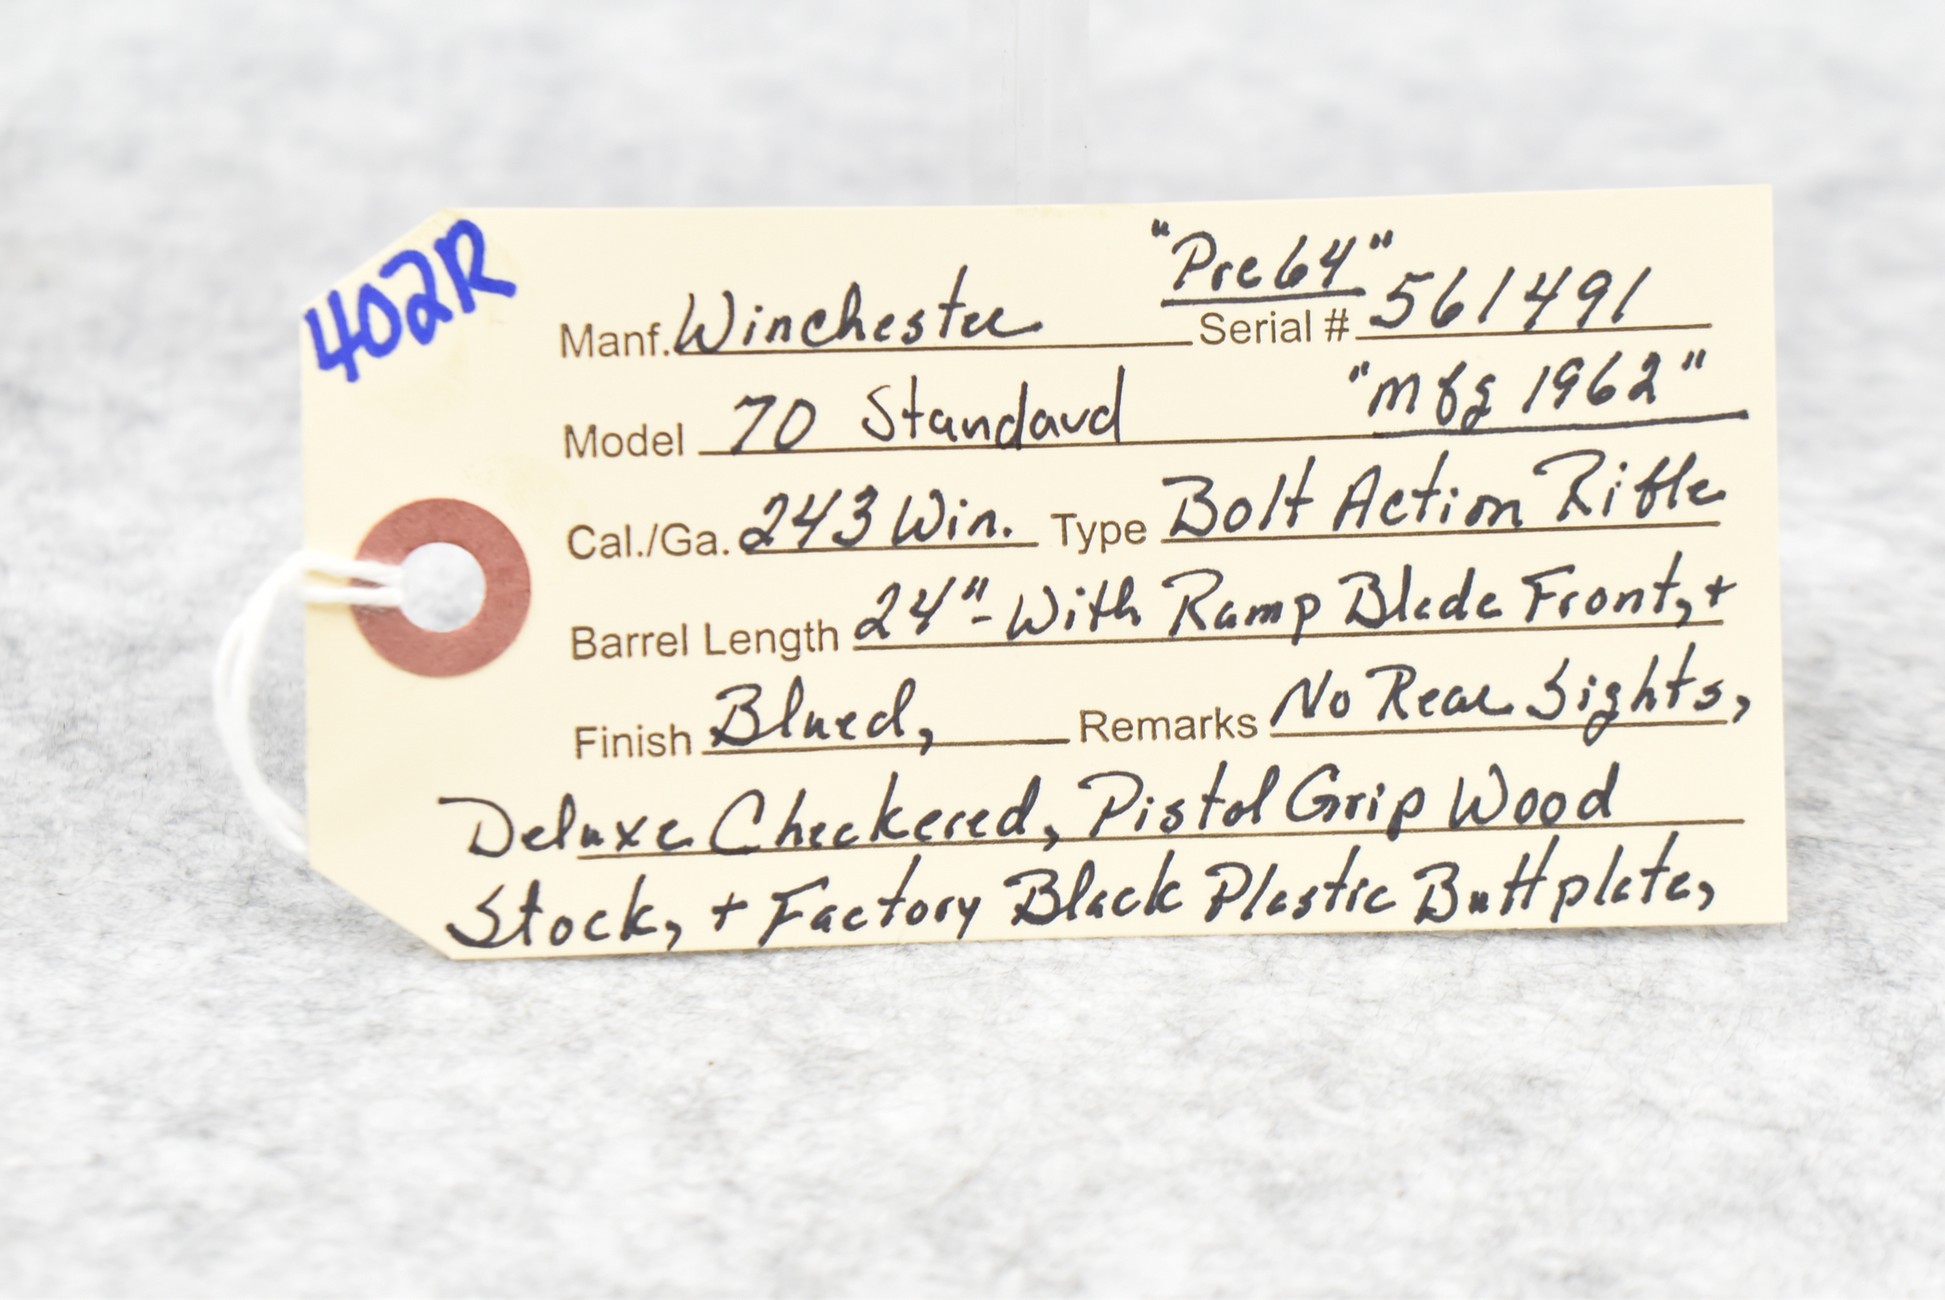 402R
"Pre 64"
Manf. Winchester Serial # 561491
Model 70 Standard "Mfg 1962"
Cal./Ga. 243 Win. Type Bolt Action Rifle
Barrel Length 24"- With Ramp Blade Front, +
Finish Blued, Remarks No Rear Sights,
Deluxe Checkered, Pistol Grip Wood
Stock, + Factory Black Plastic Buttplate,